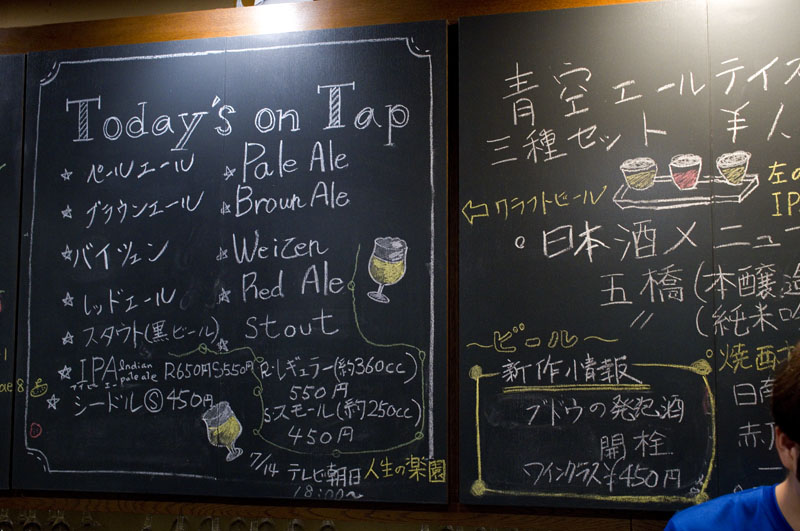 Today's on Tap
☆ ペールエール ☆ Pale Ale
☆ ブラウンエール ☆ Broun Ale
☆ バイツェン ☆ Weizen
☆ レッドエール ☆ Red Ale
☆ スタウト(黒ビール) ☆ Stout
☆ IPA Indian pale ale R650円 S550円
アイピーエー
☆ シードル Ⓢ 450円
R・レギュラー(約360cc)
550円
S・スモール(約250cc)
450円
7/14 テレビ朝日 人生の楽園
18:00〜
青空エールテイス
三種セット ¥
左の
IP
⇦クラフトビール
。日本酒メニュー
五橋(本醸造
〃 (純米吟
〜ビール〜
新作情報
ブドウの発泡酒
開栓
ワイングラス¥450円
焼酎
日南
赤